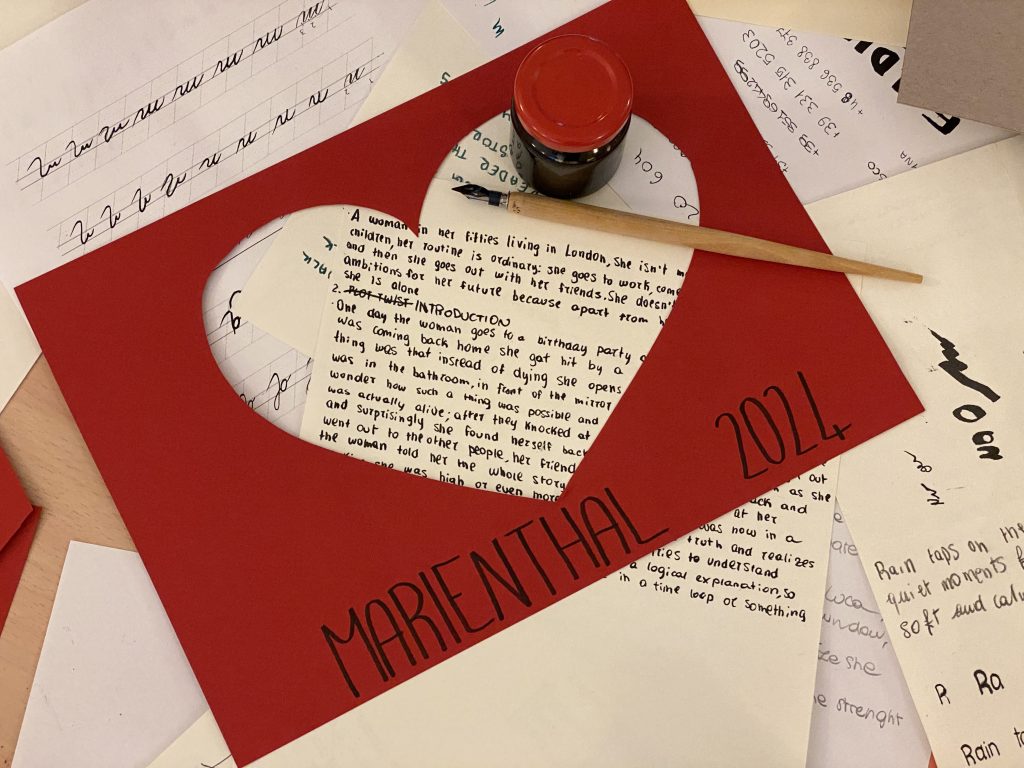 A woman in her fifties living in London, she isn't m
children, her routine is ordinary: she goes to work, come
and then she goes out with her friends. She doesn'
ambitions for her future because apart from h
she is alone
2. PLOT TWIST INTRODUCTION
One day the woman goes to a birthday party
was coming back home she got hit by a
thing was that instead of dying she opens
was in the bathroom, in front of the mirror
wonder how such a thing was possible and
was actually alive; after they knocked at
and surprisingly she found herself back
went out to the other people, her friend
the woman told her the whole story
she was high or even more
out
as she
ack and
at her
was now in a
truth and realizes
ries to understand
a logical explanation, so
in a time loop or something
MARIENTHAL
2024
LEADER TH
STOR
JACK
604
+48 536 838 3
+39 331 315 5203
+39 3516944299
Rain taps on the
quiet moments
soft and calm
R Ra
Rain ta
luca
undow,
ze she
he strenght